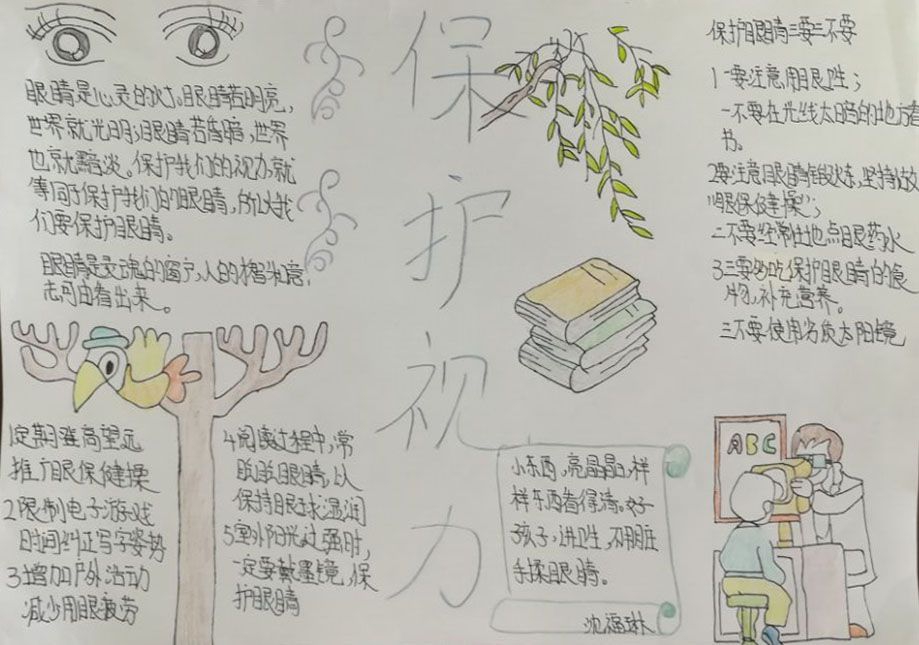 保护视力
眼睛是心灵的灯。眼睛若明亮,
世界就光明;眼睛若昏暗,世界
也就黯淡。保护我们的视力,就
等同于保护我们的眼睛,所以我
们要保护眼睛。
眼睛是灵魂的窗户,人的才智和意
志可由看出来。
1定期登高望远
推广眼保健操
2限制电子游戏
时间纠正写字姿势
3增加户外活动
减少用眼疲劳
4阅读过程中,常
眨眨眼睛,以
保持眼球湿润
5室外阳光过强时,
一定要戴墨镜,保
护眼睛
保护眼睛三要三不要
1一要注意用眼卫生;
一不要在光线太暗的地方看
书。
2要注意眼睛锻炼,坚持做
"眼保健操";
二不要经常性地点眼药水
3三要多吃保护眼睛的食
物,补充营养。
三不要使用劣质太阳镜
ABC
小东西,亮晶晶,样
样东西看得清。好
孩子,讲卫生,不用脏
手揉眼睛。
沈福琳